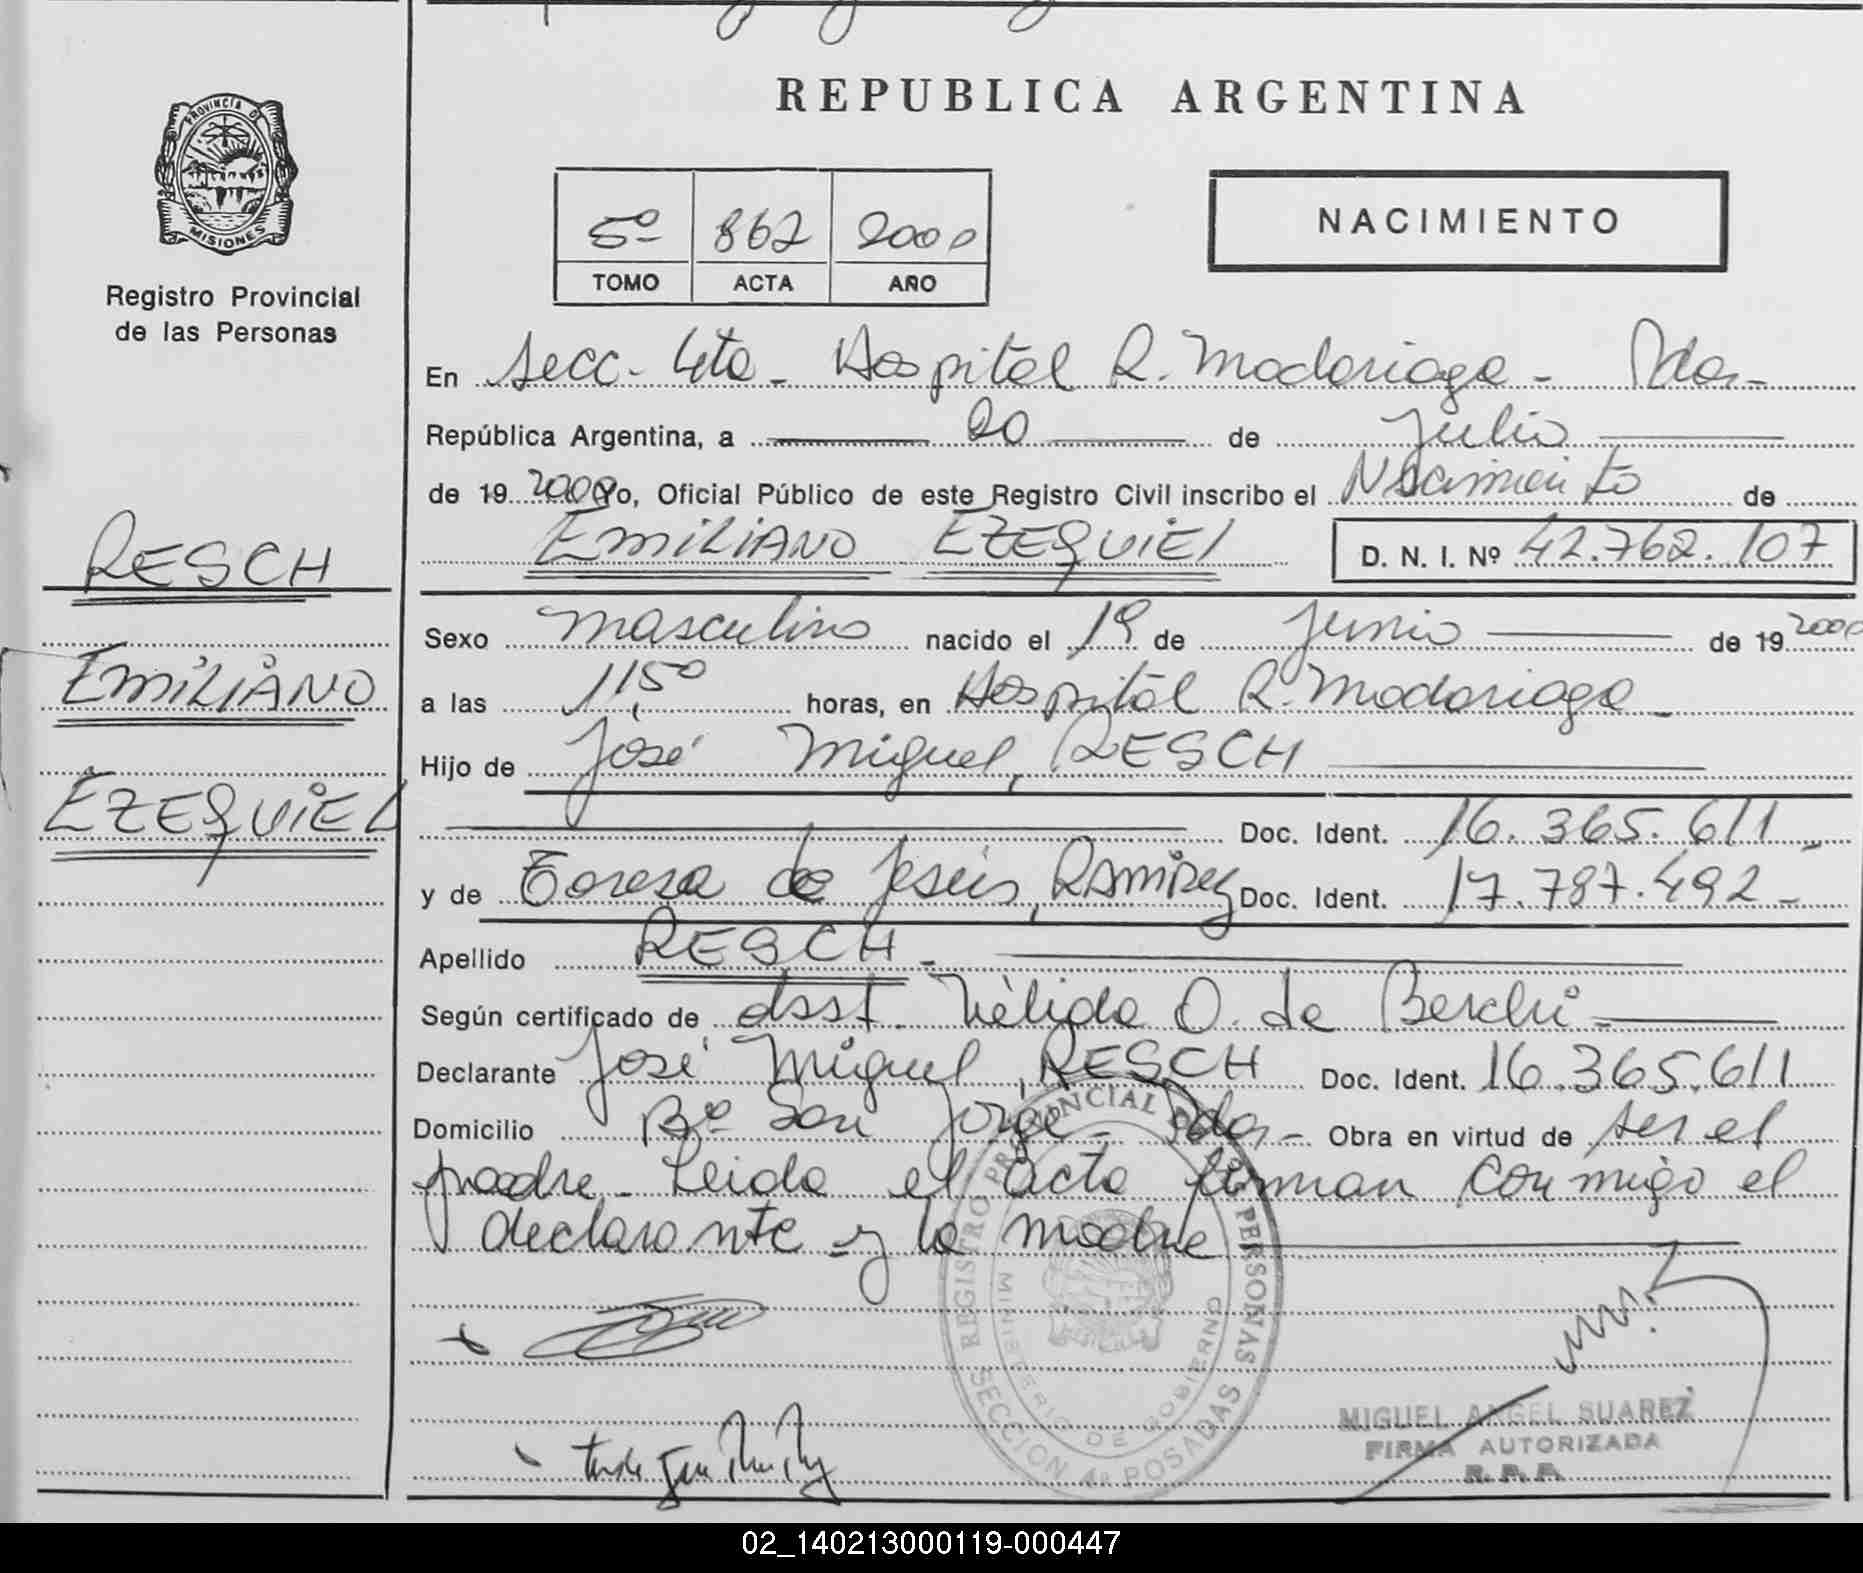 REPUBLICA ARGENTINA
PROVINCIA DE
MISIONES
Registro Provincial
de las Personas
5º 862 2000
TOMO ACTA AÑO
NACIMIENTO
En Secc. 4ta - Hospital R. Madariaga - Pdas -
República Argentina, a 20 de Julio
de 19 2000 Yo, Oficial Público de este Registro Civil inscribo el Nacimiento de
EMILIANO EZEQUIEL D. N. I. Nº 42.762.107
RESCH
EMILIANO
EZEQUIEL
Sexo masculino nacido el 19 de Junio de 19 2000
a las 11,50 horas, en Hospital R. Madariaga -
Hijo de José Miguel, RESCH
Doc. Ident. 16.365.611 -
y de Teresa de Jesús, RAMIREZ Doc. Ident. 17.787.492 -
Apellido RESCH -
Según certificado de Asst. Nélida O. de
Declarante José Miguel, RESCH Doc. Ident. 16.365.611
Domicilio Bº San Jorge - Pdas - Obra en virtud de ser el
padre - Leida el acta firman conmigo el
declarante y la madre
REGISTRO PROVINCIAL DE LAS PERSONAS
MINISTERIO DE GOBIERNO
SECCION 4ª POSADAS
MIGUEL ANGEL SUAREZ
FIRMA AUTORIZADA
R. P. P.
02_140213000119-000447